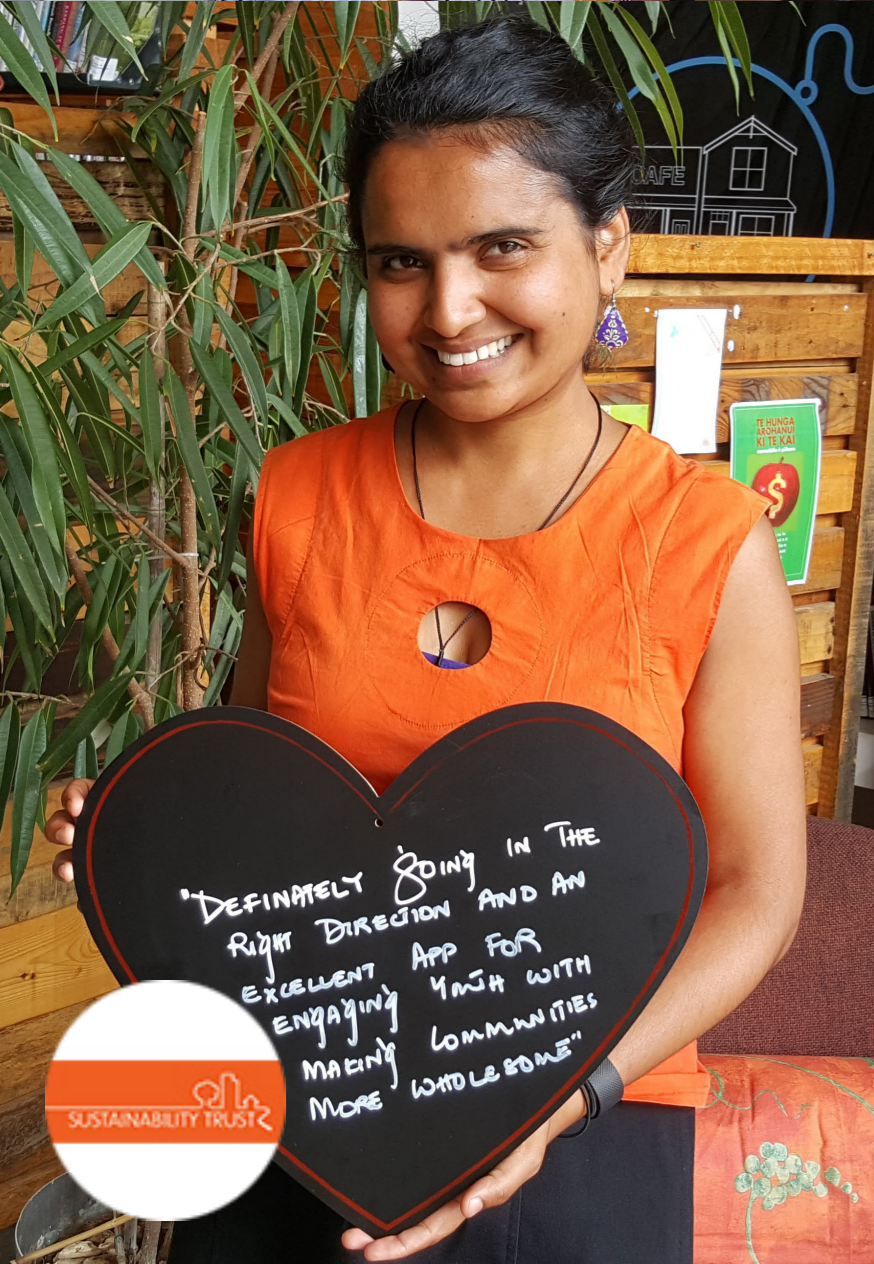 CAFE
TE HUNGA
AROHANUI
KI TE KAI
"DEFINATELY GOING IN THE
RIGHT DIRECTION AND AN
EXCELLENT APP FOR
ENGAGING YOUTH WITH
MAKING COMMUNITIES
MORE WHOLESOME"
SUSTAINABILITY TRUST